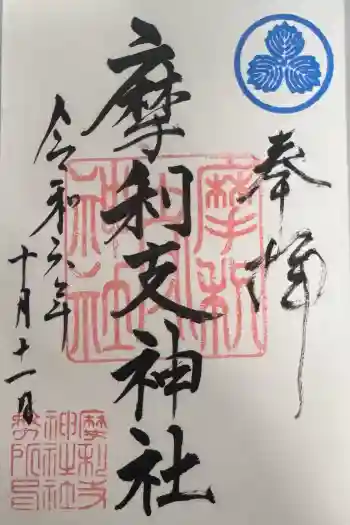 奉拝
摩利支神社
令和六年
十月十一日
摩利
支神社
摩利支
神社社
務所印